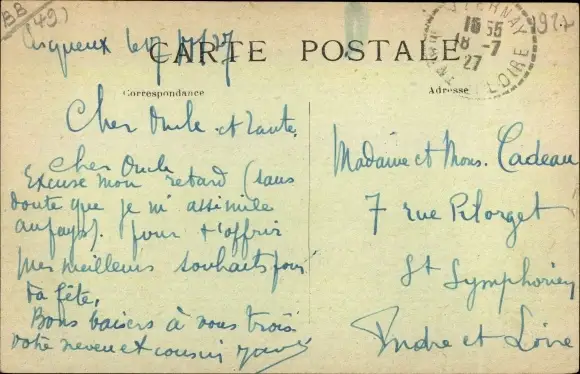 BB
(49)
1927
le 17/7/27
CARTE POSTALE
Correspondance
Adresse
15 55
18 -7
27
LOIRE
Cher Oncle et Tante,
Cher Oncle
Excuse mon retard (sans
doute que je m'assimile
au pays). pour t'offrir
mes meilleurs souhaits pour
ta fête,
Bons baisers à vous trois
votre neveu et cousin
Madame et Mons. Cadeau
7 rue Pilorget
St Symphorien
Indre et Loire